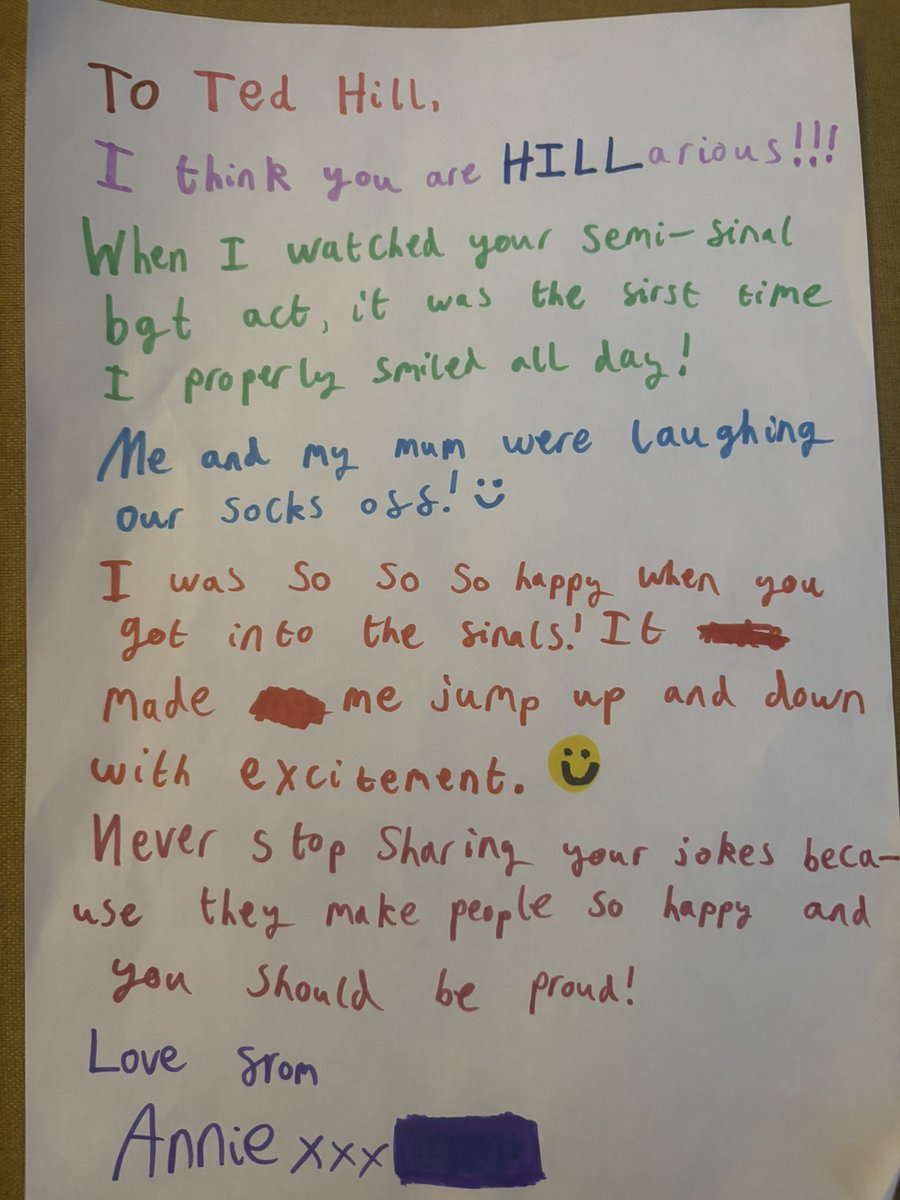 To Ted Hill,
I think you are HILLarious!!!
When I watched your semi-final
bgt act, it was the first time
I properly smiled all day!
Me and my mum were laughing
our socks off!
I was so so so happy when you
got into the finals! It
made me jump up and down
with excitement.
Never stop sharing your jokes beca-
use they make people so happy and
you should be proud!
Love from
Annie xxx